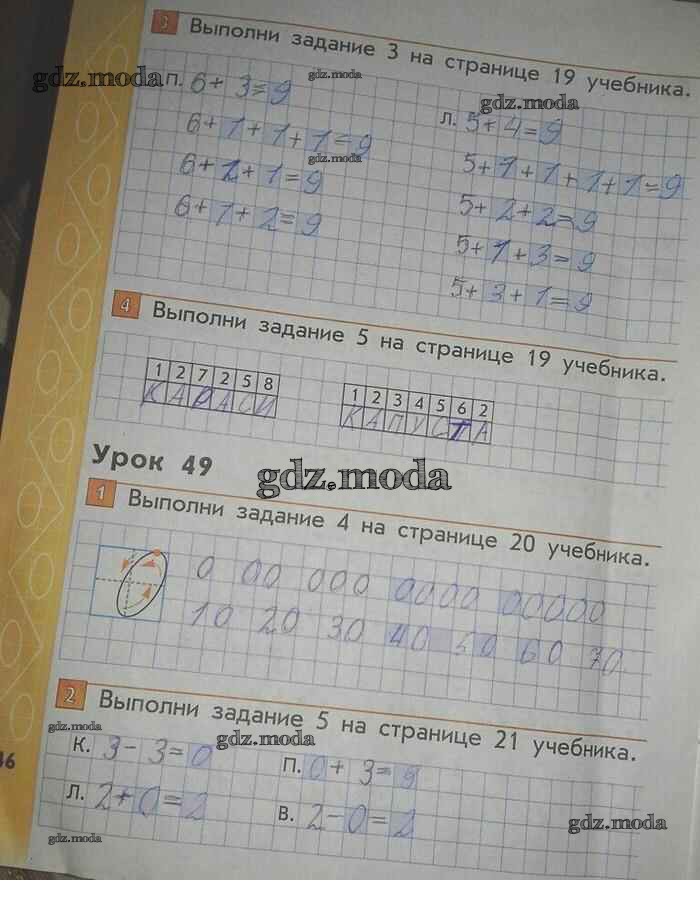 3 Выполни задание 3 на странице 19 учебника.
gdz.moda
gdz.moda
gdz.moda
П. 6+ 3=9
Л. 5+4=9
6+1+1+1=9
gdz.moda
5+1+1+1+1=9
6+2+1=9
5+2+2=9
6+1+2=9
gdz.moda
5+1+3=9
5+3+1=9
4 Выполни задание 5 на странице 19 учебника.
1 2 7 2 5 8
КАРАСИ
1 2 3 4 5 6 2
КАПУСТА
Урок 49
gdz.moda
1 Выполни задание 4 на странице 20 учебника.
0 00 000 0000 00000
10 20 30 40 50 60 70
2 Выполни задание 5 на странице 21 учебника.
gdz.moda
gdz.moda
К. 3-3=0
П. 0+3=
Л. 2+0=2
В. 2-0=2
gdz.moda
gdz.moda